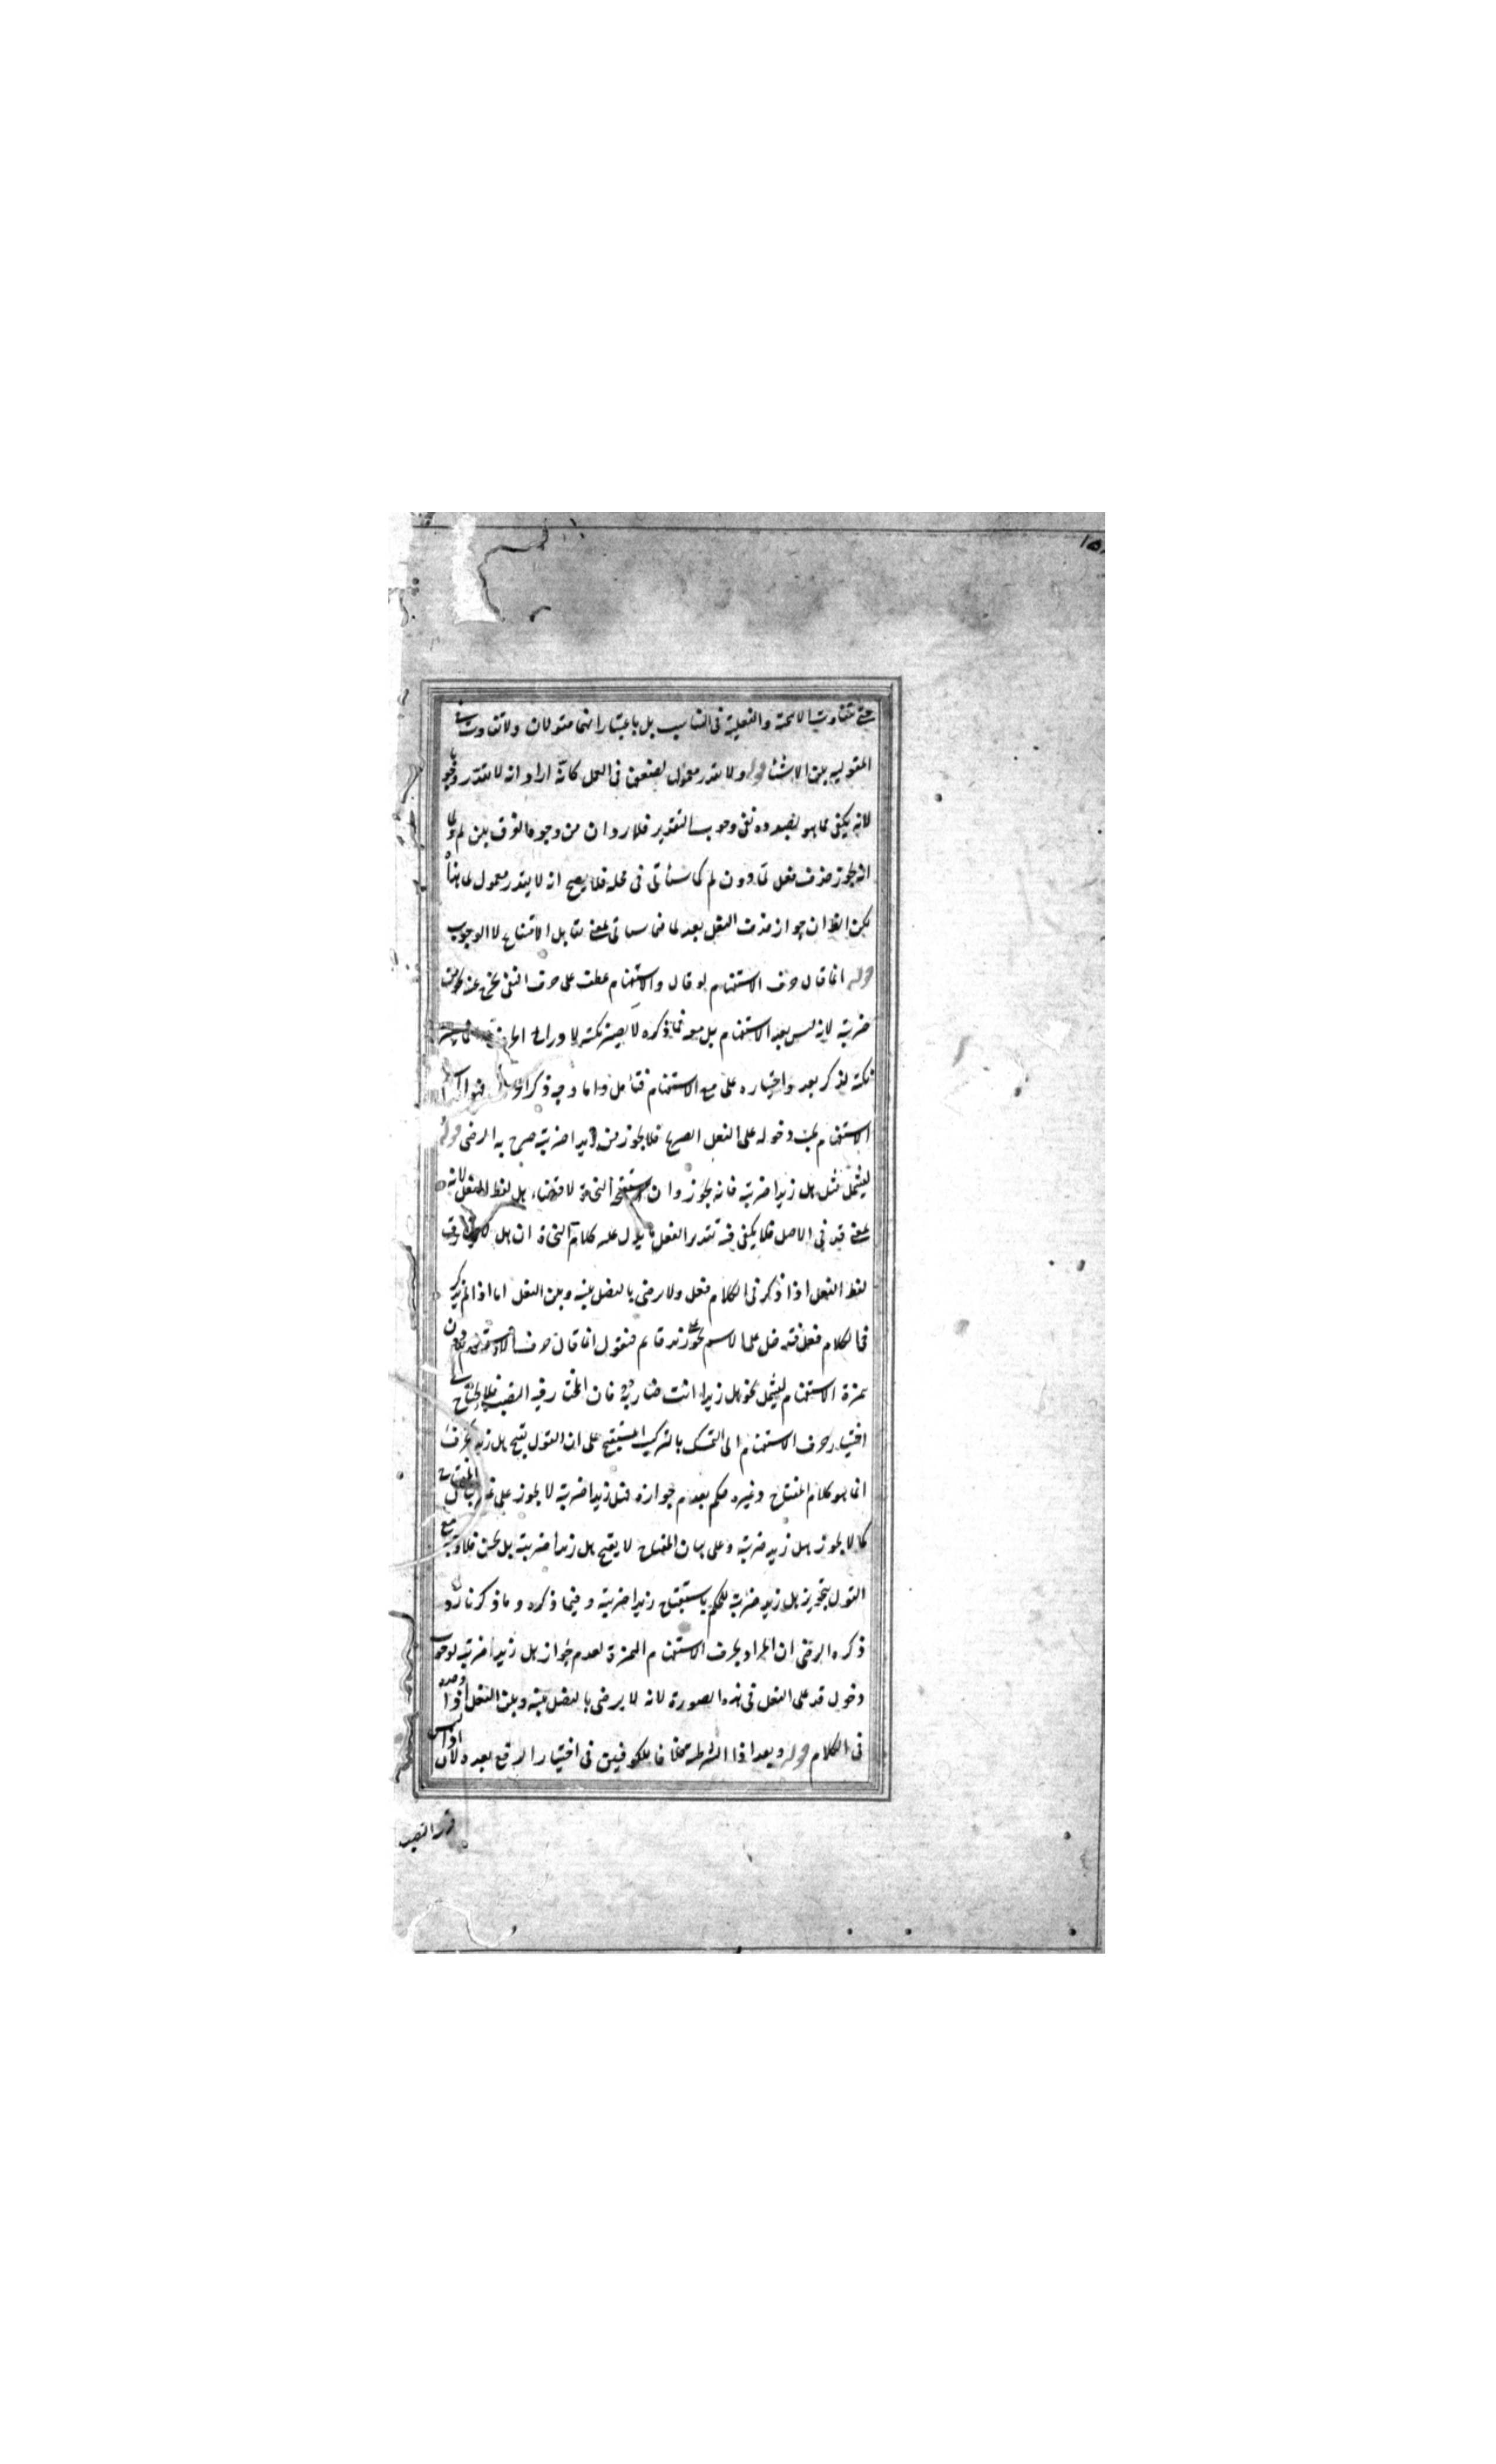 حتى يتفاوت الاسمية والفعلية في التناسب بل باعتبار انهما مقولان ولا تفاوت في
المقولية بين الاشياء قوله ولا يقدر معمول لضعفهن في العمل كانه اراد انه لا يقدر وجوبا
لانه يكفي لما هو بصدده نفي وجوب التقدير فلا يرد ان من وجوه الفرق بين لم ولما
انه يجوز حذف فعل لما دون لم كما سيأتي في محله فلا يصح انه لا يقدر معمول لما هذا
لكن الظ ان جواز حذف الفعل بعد لما فيما سيأتي بمعنى يقابل الامتناع لا الوجوب
قوله انما قال حرف الاستفهام لو قال والاستفهام عطف على حرف النفي يخرج عنه
ضربته لانه ليس بعد الاستفهام بل معه فما ذكره لا يصير نكتة لايراد
نكتة لذكر بعد واختياره على مع الاستفهام فتأمل واما وجه ذكر
الاستفهام يجب دخوله على الفعل الصريح فلا يجوز من زيدا ضربته صرح به الرضى قوله
ليشمل مثل هل زيدا ضربته فانه يجوز وان استقبحه النحاة لاقتضاء هل لفظ الفعل لانه
بمعنى قد في الاصل فلا يكفي فيه تقدير الفعل يدل عليه كلام النحاة ان هل
لفظ الفعل اذا ذكر في الكلام فعل ولا يرضى بالفصل بينه وبين الفعل اما اذا لم يذكر
في الكلام فعل فتدخل على الاسم نحو هل زيد قائم فنقول انما قال حرف الاستفهام دون
همزة الاستفهام ليشمل نحو هل زيدا انت ضاربه فان المختار فيه النصب فلا يحتاج في
اختيار حرف الاستفهام الى التمسك بالتركيب المستقبح على ان القول بقبح هل زيد عرف
انما هو كلام المفتاح وغيره حكم بعدم جوازه فهل زيدا ضربته لا يجوز على غير
كما لا يجوز هل زيد ضربته وعلى بيان المفتاح لا يقبح هل زيدا ضربته بل يحسن فلا وجه مع
القول بتجويز هل زيد ضربته للحكم باستقباح زيدا ضربته وفيما ذكره وما ذكرنا رد
ذكره الرضى ان المراد بحرف الاستفهام الهمزة لعدم جواز هل زيدا ضربته لوجوب
دخول قد على الفعل في هذه الصورة لانه لا يرضى بالفصل بينه وبين الفعل اذا وجده
في الكلام قوله وبعد اذا الشرطية خلافا للكوفيين في اختيار الرفع بعده لان اذا ليس